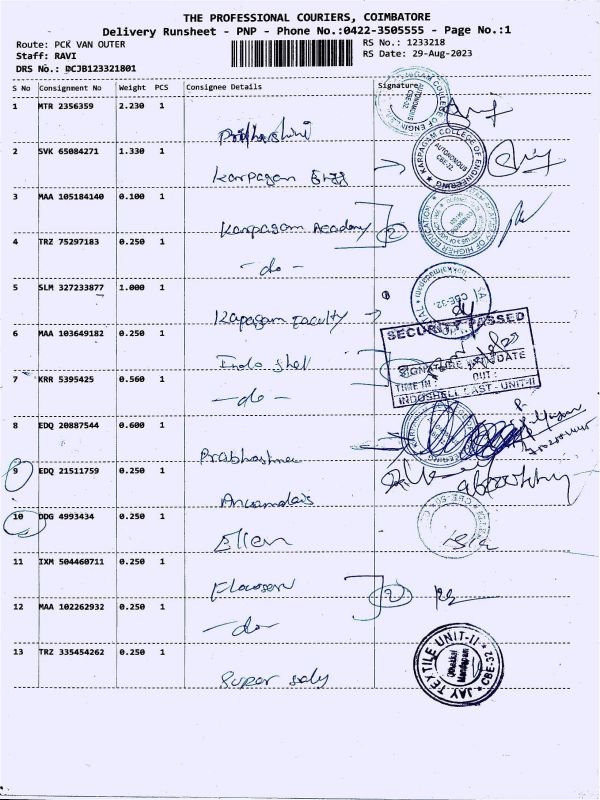 THE PROFESSIONAL COURIERS, COIMBATORE
Delivery Runsheet - PNP - Phone No.:0422-3505555 - Page No.:1
Route: PCK VAN OUTER
RS No.: 1233218
Staff: RAVI
RS Date: 29-Aug-2023
DRS No.: DCJB123321801
S No Consignment No Weight PCS Consignee Details Signature
1 MTR 2356359 2.230 1
KARPAGAM COLLEGE OF ENGINEERING
AUTONOMOUS
CBE-32.
2 SVK 65084271 1.330 1
Karpagam
KARPAGAM COLLEGE OF ENGINEERING
AUTONOMOUS
CBE-32.
3 MAA 105184140 0.100 1
Karpagam Academy
2
OF HIGHER EDUCATION
4 TRZ 75297183 0.250 1
- do -
5 SLM 327233877 1.000 1
Kapagam Faculty
CBE-32.
6 MAA 103649182 0.250 1
Indo shell
SECURITY PASSED
SIGNATURE AND DATE
TIME IN : OUT :
INDOSHELL CAST - UNIT-II
7 KRR 5395425 0.560 1
- do -
8 EDQ 20887544 0.600 1
9 EDQ 21511759 0.250 1
10 DDG 4993434 0.250 1
Ellen
11 IXM 504460711 0.250 1
2
12 MAA 102262932 0.250 1
- do -
13 TRZ 335454262 0.250 1
Super
JAY TEXTILE UNIT-II
CBE-32